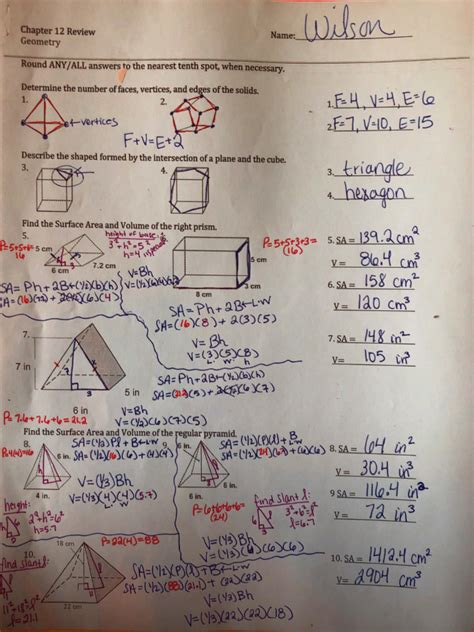 Chapter 12 Review
Geometry
Name: Wilson
Round ANY/ALL answers to the nearest tenth spot, when necessary.
Determine the number of faces, vertices, and edges of the solids.
1.
2.
vertices
F+V=E+2
1. F=4, V=4, E=6
2. F=7, V=10, E=15
Describe the shaped formed by the intersection of a plane and the cube.
3.
4.
3. triangle
4. hexagon
Find the Surface Area and Volume of the right prism.
5.
height of base:
3²+h²=5²
h=4
P=5+5+6=
16
5 cm
6 cm
7.2 cm
V=Bh
SA=Ph+2B
P=5+5+3+3=
(16)
5 cm
3 cm
8 cm
SA=Ph+2B
SA=(16)(8)+2(3)(5)
V=Bh
V=(3)(5)(8)
5. SA= 139.2 cm²
V= 86.4 cm³
6. SA= 158 cm²
V= 120 cm³
7.
7 in
5 in
6 in
P=7.6+7.6+6=21.2
V=Bh
V=(½)(6)(7)(5)
SA=Ph+2B
7. SA= 148 in²
V= 105 in³
Find the Surface Area and Volume of the regular pyramid.
8.
P=4(4)=16
6 in.
4 in.
SA=(½)Pl+B
SA=(½)(16)(6)+(4)(4)
V=(⅓)Bh
V=(⅓)(4)(4)(5.7)
height:
2²+h²=6²
h=5.7
9.
6 in.
6 in.
6 in.
SA=(½)(P)(l)+B
SA=(½)(24)(6.7)+(6)(6)
P=6+6+6+6=
(24)
find slant l:
3²+6²=l²
l=6.7
V=(⅓)Bh
V=(⅓)(6)(6)(6)
8. SA= 64 in²
V= 30.4 in³
9 SA= 116.4 in²
V= 72 in³
10.
18 cm
22 cm
find slant l:
11²+18²=l²
l=21.1
P=22(4)=88
SA=(½)(P)(l)+B
SA=(½)(88)(21.1)+(22)(22)
V=(⅓)Bh
V=(⅓)(22)(22)(18)
10. SA= 1412.4 cm²
V= 2904 cm³